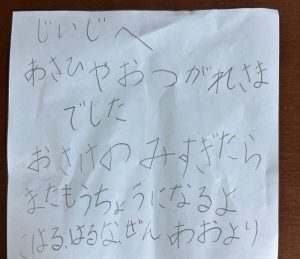 じいじへ
あさひやおつがれさま
でした
おさけのみすぎたら
またもうちょうになるよ
こはる、はるな、ぜん あおより